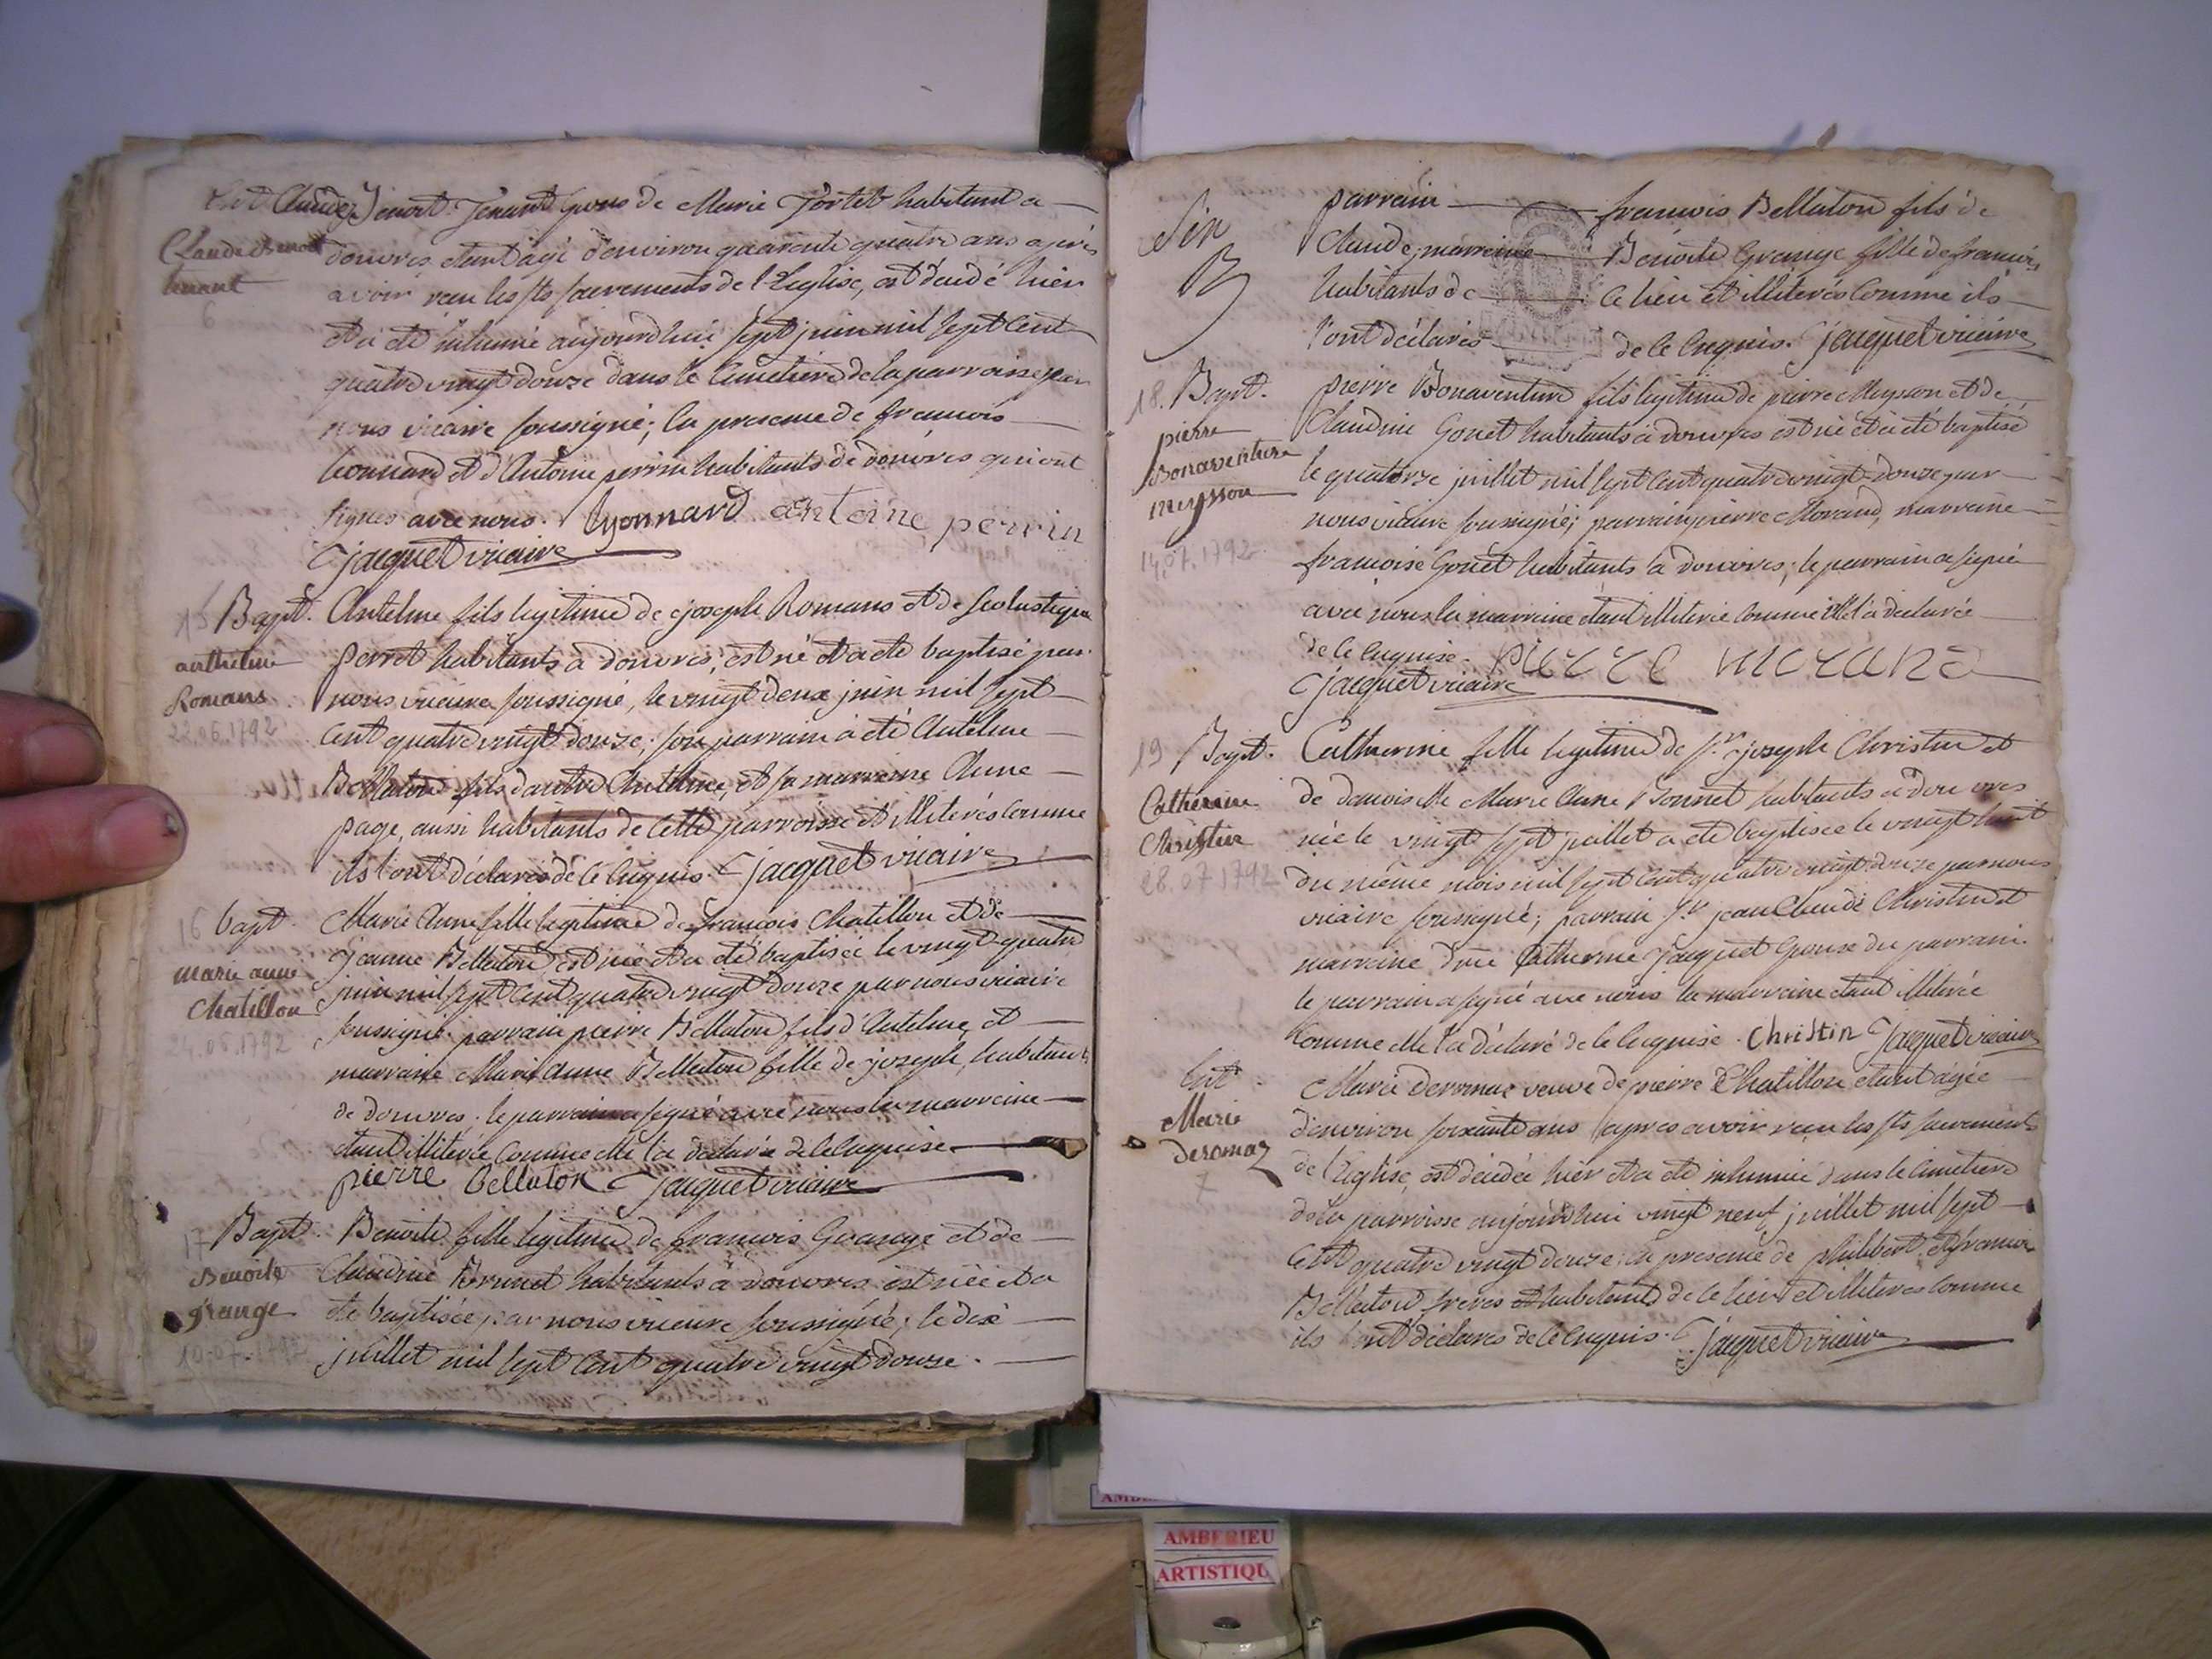 Ent Claude Benoit Tenant Epoux de Marie Tortet habitant a
Claude Benoit
tenant
6
douvres, etant agé d'environ quarante quatre ans apres
avoir reçu les sts sacrements de l'Eglise, est decedé hier
et a eté inhumé aujourdhui sept juin mil sept cent
quatre vingt douze dans le cimetiere de la parroisse par
nous vicaire soussigné; en presence de francois
Lionnard et d'Antoine perrin habitants de douvres qui ont
signés avec nous. Lyonnard antoine perrin
jacquet vicaire
15 Bapt.
anthelme
Romans
22.06.1792
Antelme fils legitime de joseph Romans et de scolastique
perret habitants à douvres, est né et a eté baptisé par
nous vicaire soussigné, le vingt deux juin mil sept
cent quatre vingt douze; son parrain a été Antelme
Bellaton fils d'autre Antelme, et sa marraine Anne
page, aussi habitants de cette parroisse et illiterés comme
ils l'ont déclarés de ce enquis. jacquet vicaire
16 bapt.
marie anne
Chatillon
24.06.1792
Marie Anne fille legitime de francois Chatillon et de
Jeanne Bellaton est née et a eté baptisée le vingt quatre
juin mil sept cent quatre vingt douze par nous vicaire
soussigné. parrain pierre Bellaton fils d'Antelme, et
marraine Marie Anne Bellaton fille de joseph, habitants
de douvres. le parrain a signé avec nous la marraine
etant illiterée comme elle l'a declarée de ce enquise
pierre Bellaton jacquet vicaire
17 Bapt.
Benoite
grange
10.07.1792
Benoite fille legitime de francois Grange et de
Claudine Brunet habitants à douvres est née et a
eté baptisée par nous vicaire soussigné, le dix
juillet mil sept cent quatre vingt douze.
Six
parrain francois Bellaton fils de
Claude, marraine Benoite Grange fille de francois
habitants de ce lieu et illiterés comme ils
l'ont déclarés de ce enquis. jacquet vicaire
18. Bapt.
pierre
Bonaventure
meysson
14.07.1792
pierre Bonaventure fils legitime de pierre Meysson et de
Claudine Gonet habitants à douvres est né et a eté baptisé
le quatorze juillet mil sept cent quatre vingt douze par
nous vicaire soussigné; parrain pierre Morand, marraine
francoise Gonet habitants à douvres; le parrain a signé
avec nous la marraine etant illiterée comme elle l'a declarée
de ce enquise. pierre morand
jacquet vicaire
19 Bapt.
Catherine
Christin
28.07.1792
Catherine fille legitime de sr joseph Christin et
de demoiselle Marie Anne Bonnet habitants à douvres
née le vingt sept juillet a eté baptisée le vingt huit
du même mois mil sept cent quatre vingt douze par nous
vicaire soussigné; parrain sr jean Claude Christin et
marraine dme Catherine Jacquet Epouse du parrain.
le parrain a signé avec nous la marraine etant illiterée
comme elle l'a déclaré de ce enquise. Christin jacquet vicaire
Ent
Marie
deromaz
7
Marie deromaz veuve de pierre Chatillon etant agée
d'environ soixante ans apres avoir reçu les sts sacrements
de l'Eglise, est decedée hier et a eté inhumée dans le cimetiere
de la parroisse aujourdhui vingt neuf juillet mil sept
cent quatre vingt douze, en presence de philibert et francois
Bellaton freres et habitants de ce lieu et illiteres comme
ils l'ont déclarés de ce enquis. jacquet vicaire
AMBERIEU
ARTISTIQU